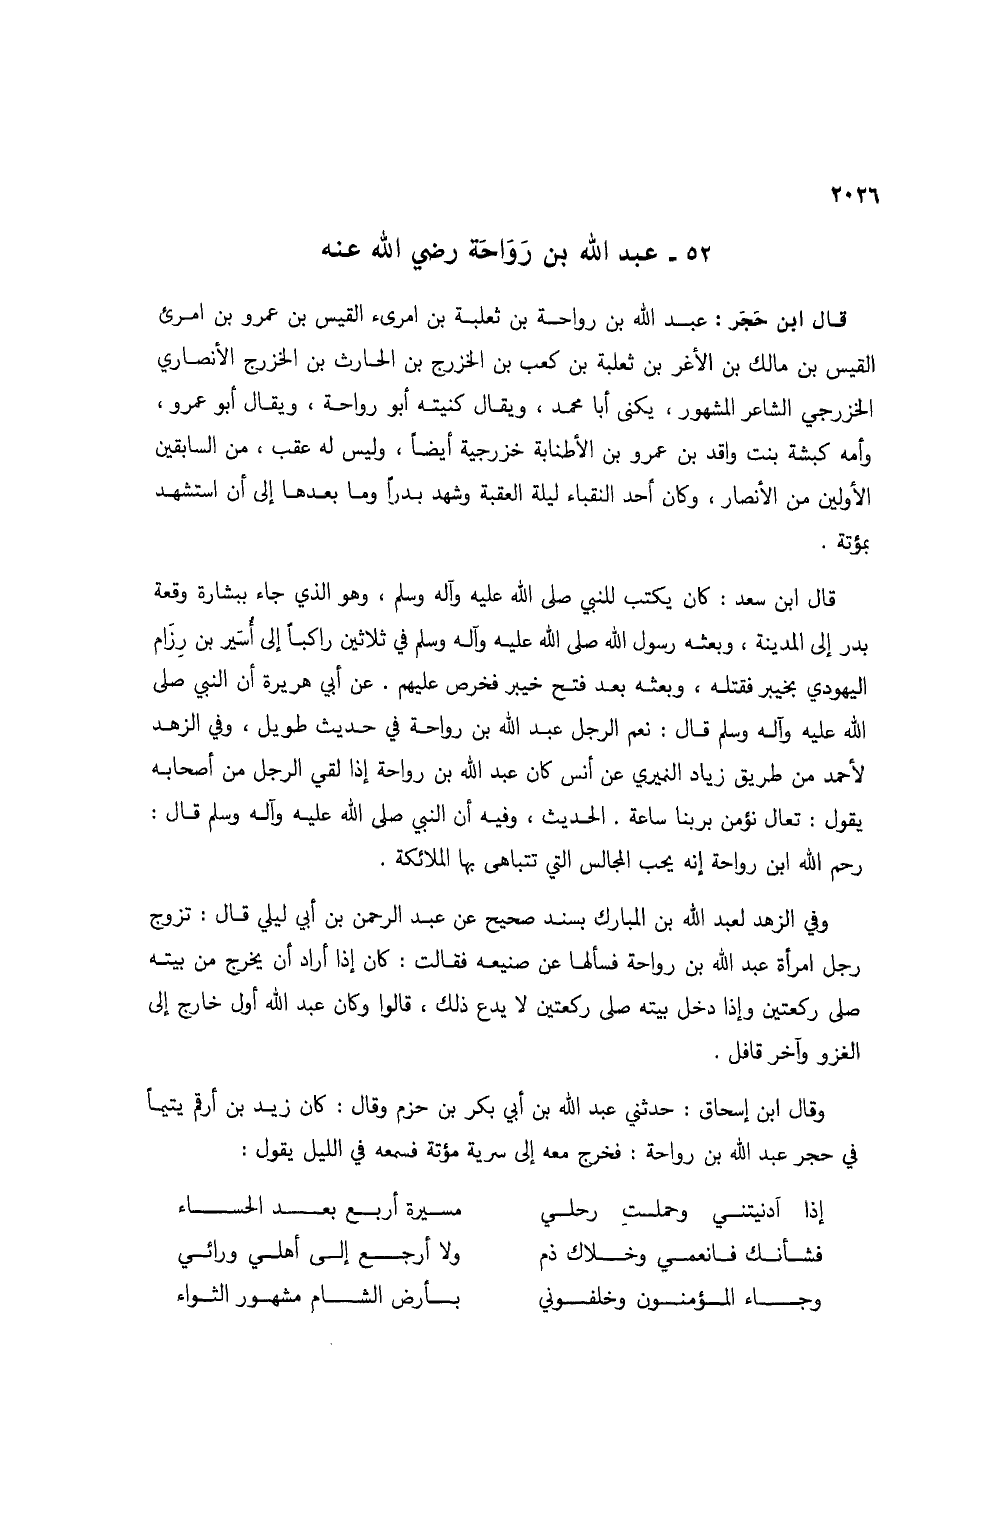 ٢٠٢٦
٥٢ - عبد الله بن رَوَاحَة رضي الله عنه
قال ابن حَجَر : عبد الله بن رواحة بن ثعلبة بن امرىء القيس بن عمرو بن امرئ
القيس بن مالك بن الأغر بن ثعلبة بن كعب بن الخزرج بن الحارث بن الخزرج الأنصاري
الخزرجي الشاعر المشهور ، يكنى أبا محمد ، ويقال كنيته أبو رواحة ، ويقال أبو عمرو ،
وأمه كبشة بنت واقد بن عمرو بن الأطنابة خزرجية أيضاً ، وليس له عقب ، من السابقين
الأولين من الأنصار ، وكان أحد النقباء ليلة العقبة وشهد بدراً وما بعدها إلى أن استشهد
بمؤتة .
قال ابن سعد : كان يكتب للنبي صلى الله عليه وآله وسلم ، وهو الذي جاء ببشارة وقعة
بدر إلى المدينة ، وبعثه رسول الله صلى الله عليه وآله وسلم في ثلاثين راكباً إلى أُسَير بن رِزَام
اليهودي بخيبر فقتله ، وبعثه بعد فتح خيبر فخرص عليهم . عن أبي هريرة أن النبي صلى
الله عليه وآله وسلم قال : نعم الرجل عبد الله بن رواحة في حديث طويل ، وفي الزهد
لأحمد من طريق زياد النميري عن أنس كان عبد الله بن رواحة إذا لقي الرجل من أصحابه
يقول : تعال نؤمن بربنا ساعة . الحديث ، وفيه أن النبي صلى الله عليه وآله وسلم قال :
رحم الله ابن رواحة إنه يحب المجالس التي تتباهى بها الملائكة .
وفي الزهد لعبد الله بن المبارك بسند صحيح عن عبد الرحمن بن أبي ليلي قال : تزوج
رجل امرأة عبد الله بن رواحة فسألها عن صنيعه فقالت : كان إذا أراد أن يخرج من بيته
صلى ركعتين وإذا دخل بيته صلى ركعتين لا يدع ذلك ، قالوا وكان عبد الله أول خارج إلى
الغزو وآخر قافل .
وقال ابن إسحاق : حدثني عبد الله بن أبي بكر بن حزم وقال : كان زيد بن أرقم يتيماً
في حجر عبد الله بن رواحة : فخرج معه إلى سرية مؤتة فسمعه في الليل يقول :
إذا أدنيتني وحملتِ رحلي مسيرة أربع بعد الحساء
فشأنك فانعمي وخلاك ذم ولا أرجع إلى أهلي ورائي
وجاء المؤمنون وخلفوني بأرض الشام مشهور الثواء